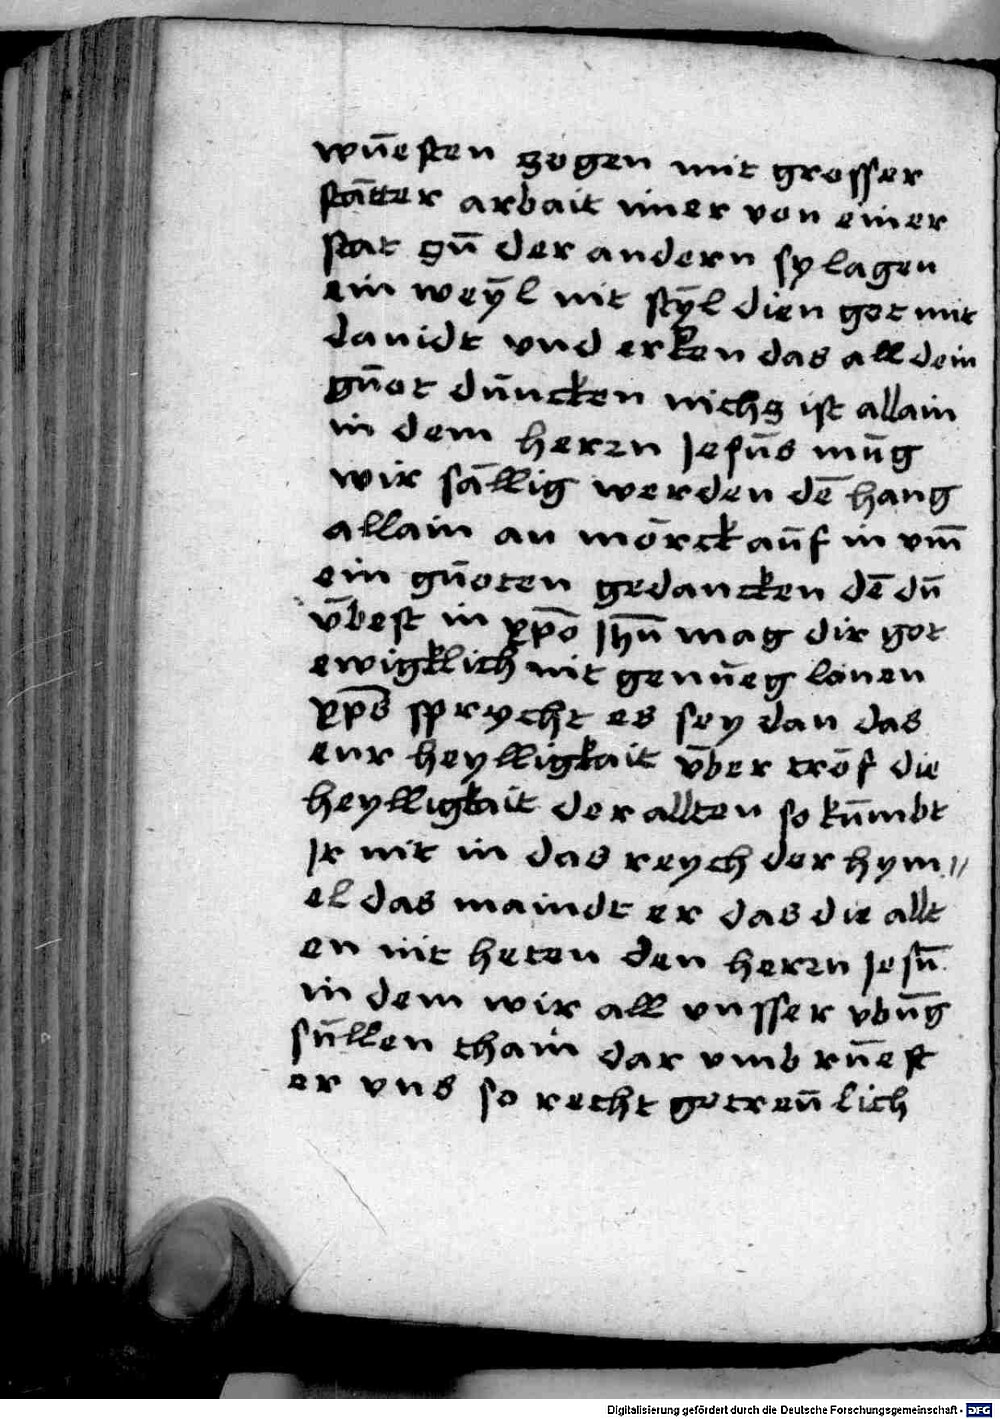 wūesten zogen mit grosser
stātter arbait imer von einer
stat zū der andern sy lagen
ein weȳl nit stȳl dien got mit
dauidt vnd erken das all dein
gūot dūncken nichs ist allain
in dem herzn Jesūs mūg
wir sāllig werden dē hang
allain an mōrck aūf in vm̄
ein gūoten gedancken dē dū
v̄best in xp̄o Jhū mag dir got
ewigklich nit genūeg lonen
xp̄s sprycht es sey dan das
eur heylligkait v̄ber trōf die
heylligkait der allten so kūmbt
Jr nit in das reych der hym〃
el das maindt er das die allt
en nit heten den herzn Jesū
in dem wir all vnsser vbūg
sūllen thain dar vmb rūeft
er vns so recht getreū lich
Digitalisierung gefördert durch die Deutsche Forschungsgemeinschaft - DFG